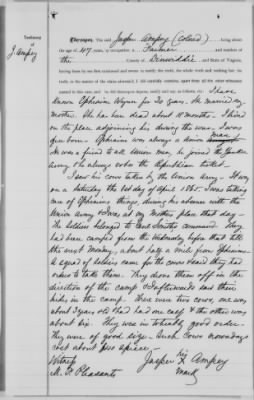 Testimony
of
J Ampey
Thereupon, The said Jasper Ampey (Colored) being about
the age of 47 years, by occupation a Farmer and resident of
the County of Dinwiddie and State of Virginia,
having been by me first examined and sworn to testify the truth, the whole truth and nothing but the
truth, in the matter aforesaid, I did carefully examine, apart from all the other witnesses
produced in this case, and he did thereupon depose, testify and say, as follows, viz: I have
known Ephraim Wynn for 30 years. He married my
mother. She has been dead about 18 months. I lived
on the place adjoining his during the war. I was
free born. Ephraim was always a Union man
He was a friend to all Union men, he joined the Yankee
Army. He always votes the Republican ticket.
I saw his cows taken by the Union Army. It was
on a Saturday the 2nd day of April 1865. I was taking
care of Ephraim's things, during his absence with the
Union Army & I was at my Mother place that day.
The Soldiers belonged to Genl Smith's command. They
had been camped from the Wednesday before that till
the next Monday, about half a mile from Ephraim
A squad of Soldiers came for the cows & said they had
orders to take them. They drove them off in the
direction of the camp & I afterwards saw their
hides in the camp. There were two cows, one was
about 3 years old & had had one calf & the other was
about six. They were in tolerably good order.
They were of good size. Such cows nowadays
cost about apiece.
Witness
M. F. Pleasants
Jasper his X mark Ampey